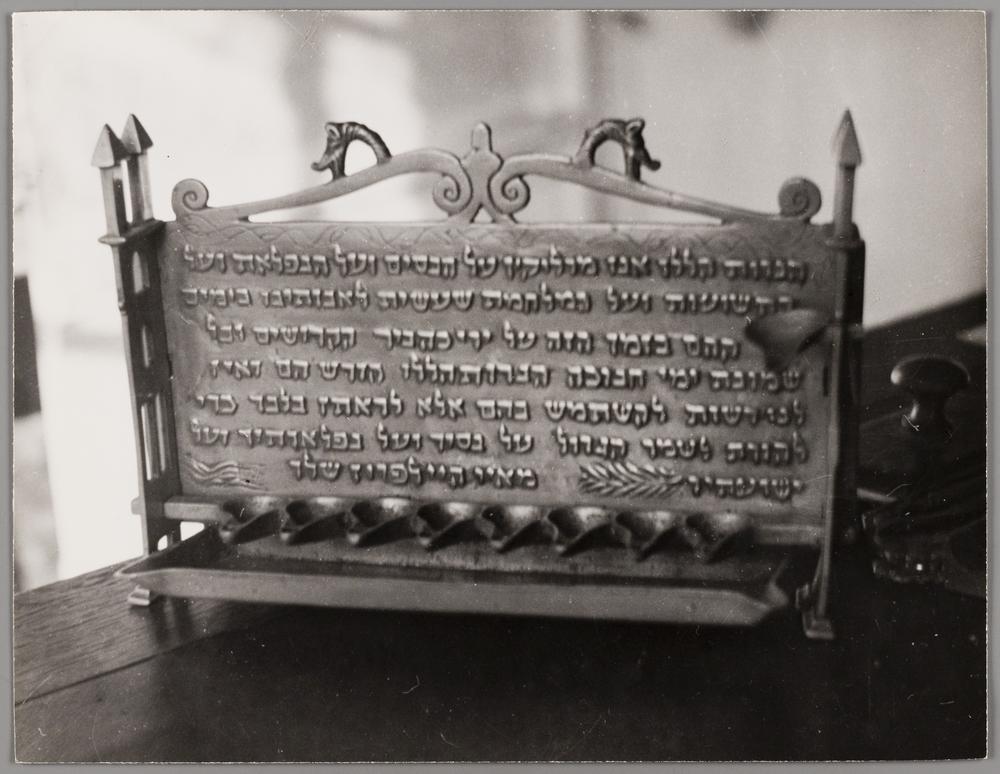 הנרות הללו אנו מדליקין על הנסים ועל הנפלאת ועל
התשועות ועל המלחמות שעשית לאבותינו בימים
ההם בזמן הזה על ידי כהניך הקדושים וכל
שמונת ימי חנוכה הנרות הללו קודש הם ואין
לנו רשות להשתמש בהם אלא לראתן בלבד כדי
להודת לשמך הגדול על נסיך ועל נפלאותיך ועל
ישועתיך מאיר היילפרון